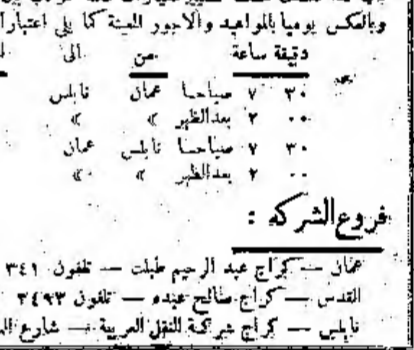 وبالعكس يوميا بالمواعيد والاجور المبينة كما يلي اعتبارا
دقيقة ساعة من الى
٣٠ ٧ صباحا عمان نابلس
٠٠ ٢ بعدالظهر » »
٣٠ ٧ صباحا نابلس عمان
٠٠ ٢ بعدالظهر » »
فروع الشركه :
عمان — كراج عبد الرحيم طبلت — تلفون ٣٤١
القدس — كراج صالح عبده — تلفون ٣٤٩٣
نابلس — كراج شركة للنقل العربية — شارع